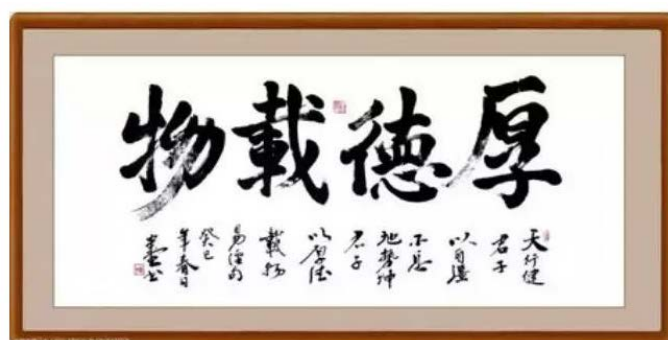 厚德載物
天行健
君子
以自强
不息
地势坤
君子
以厚德
載物
易经句
癸巳
年春日